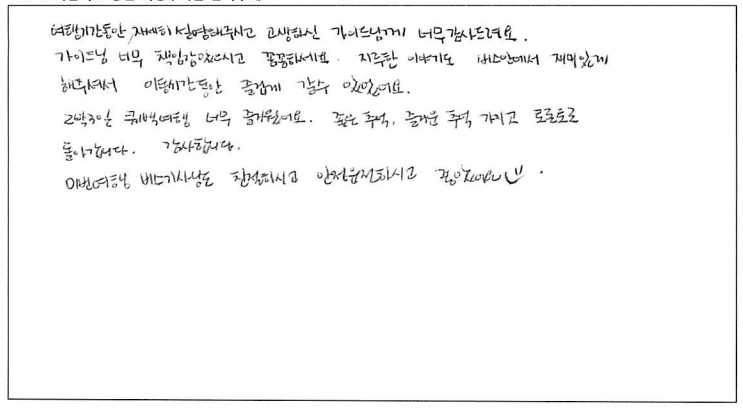 여행기간동안 자세히 설명해주시고 고생하신 가이드님께 너무 감사드려요.
가이드님 너무 책임감있으시고 꼼꼼하세요. 지루한 이야기도 버스안에서 재미있게
해주셔서 이동시간동안 즐겁게 갈수 있었어요.
2박3일 퀘백여행 너무 즐거웠어요. 좋은 추억, 즐거운 추억 가지고 토론토로
돌아갑니다. 감사합니다.
이번여행 버스기사님도 친절하시고 안전운전하시고